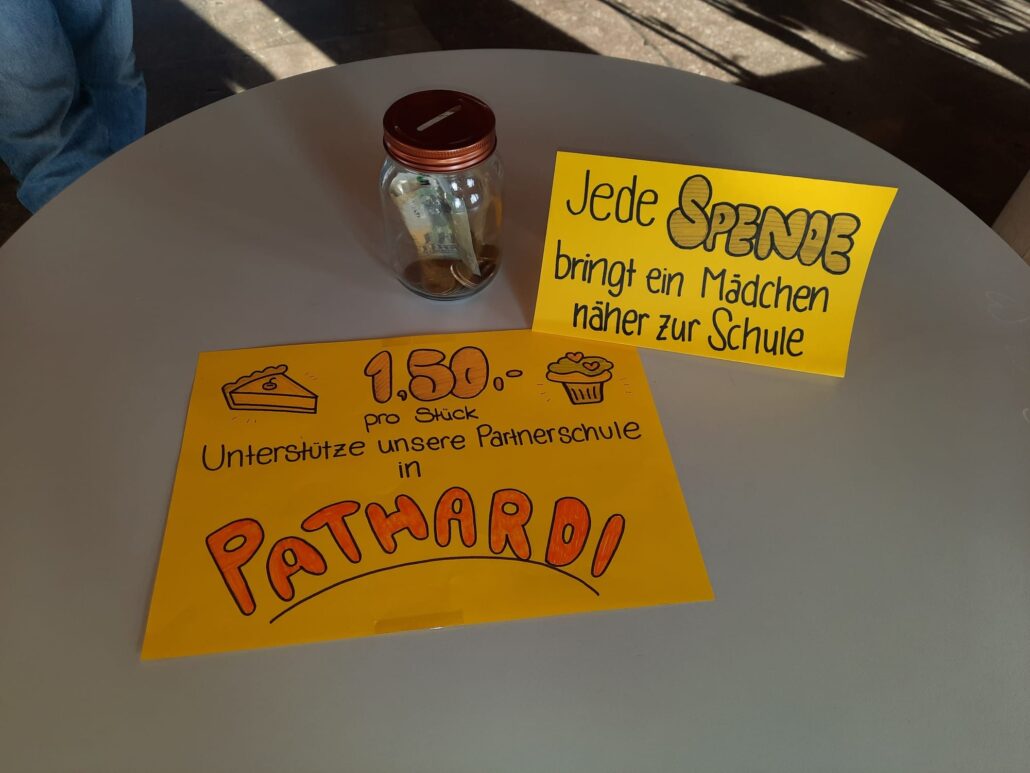 Jede SPENDE
bringt ein Mädchen
näher zur Schule
1,50.-
pro Stück
Unterstütze unsere Partnerschule
in
PATHARDI